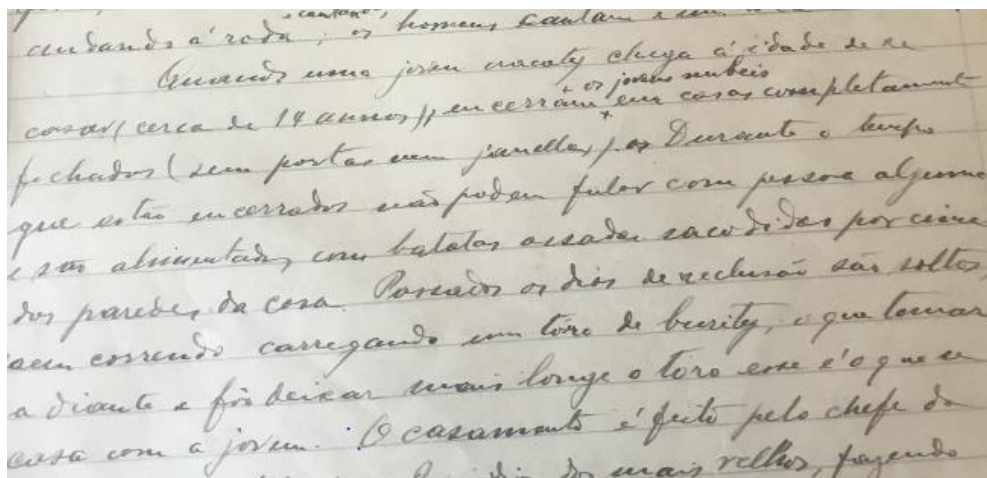 e cantando,
andando á roda; os homens cantam e
Quando uma joven cracaty chega á idade de se
os jovens nubeis
casar (cerca de 14 annos), encerram + em casas completament
fechados (sem portas nem janellas) os Durante o tempo
que estão encerrados não podem fular com pessoa alguma
e são alimentados com batatas assadas sacodidas por cima
das paredes da casa. Passados os dias de reclusão são soltos,
correndo carregando um tóro de burity, o que tomar
a diante e fôr deixar mais longe o toro esse é o que se
casa com a joven. O casamento é feito pelo chefe da
dos mais velhos, fazendo